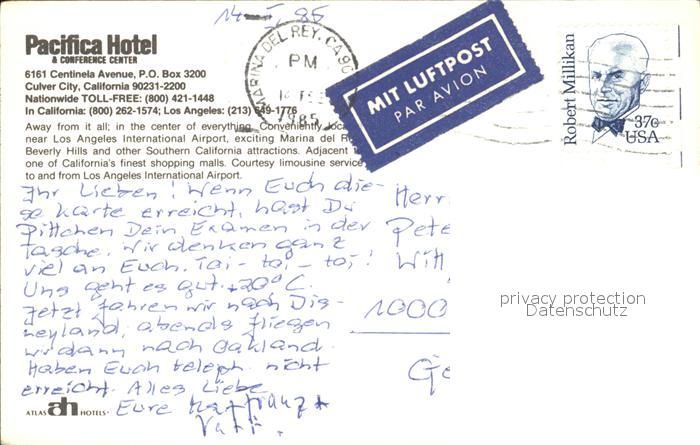 14-5-85
Pacifica Hotel
& CONFERENCE CENTER
6161 Centinela Avenue, P.O. Box 3200
Culver City, California 90231-2200
Nationwide TOLL-FREE: (800) 421-1448
In California: (800) 262-1574; Los Angeles: (213) 649-1776
Away from it all; in the center of everything. Conveniently
near Los Angeles International Airport, exciting Marina del
Beverly Hills and other Southern California attractions. Adjacent
one of California's finest shopping malls. Courtesy limousine service
to and from Los Angeles International Airport.
MARINA DEL REY, CA 90
PM
1985
MIT LUFTPOST
PAR AVION
Robert Millikan
37c
USA
Ihr Lieben! Wenn Euch die-
se Karte erreicht, hast Du
Pittchen Dein Examen in der
Tasche. Wir denken ganz
viel an Euch. Toi-toi-toi!
Uns geht es gut. +20°C.
Jetzt fahren wir nach Dis-
neyland, abends fliegen
wir dann nach Oakland.
Haben Euch teleph. nicht
erreicht. Alles Liebe
Eure
Herr
Pete
Witt
1000
Ge
privacy protection
Datenschutz
ATLAS ah HOTELS